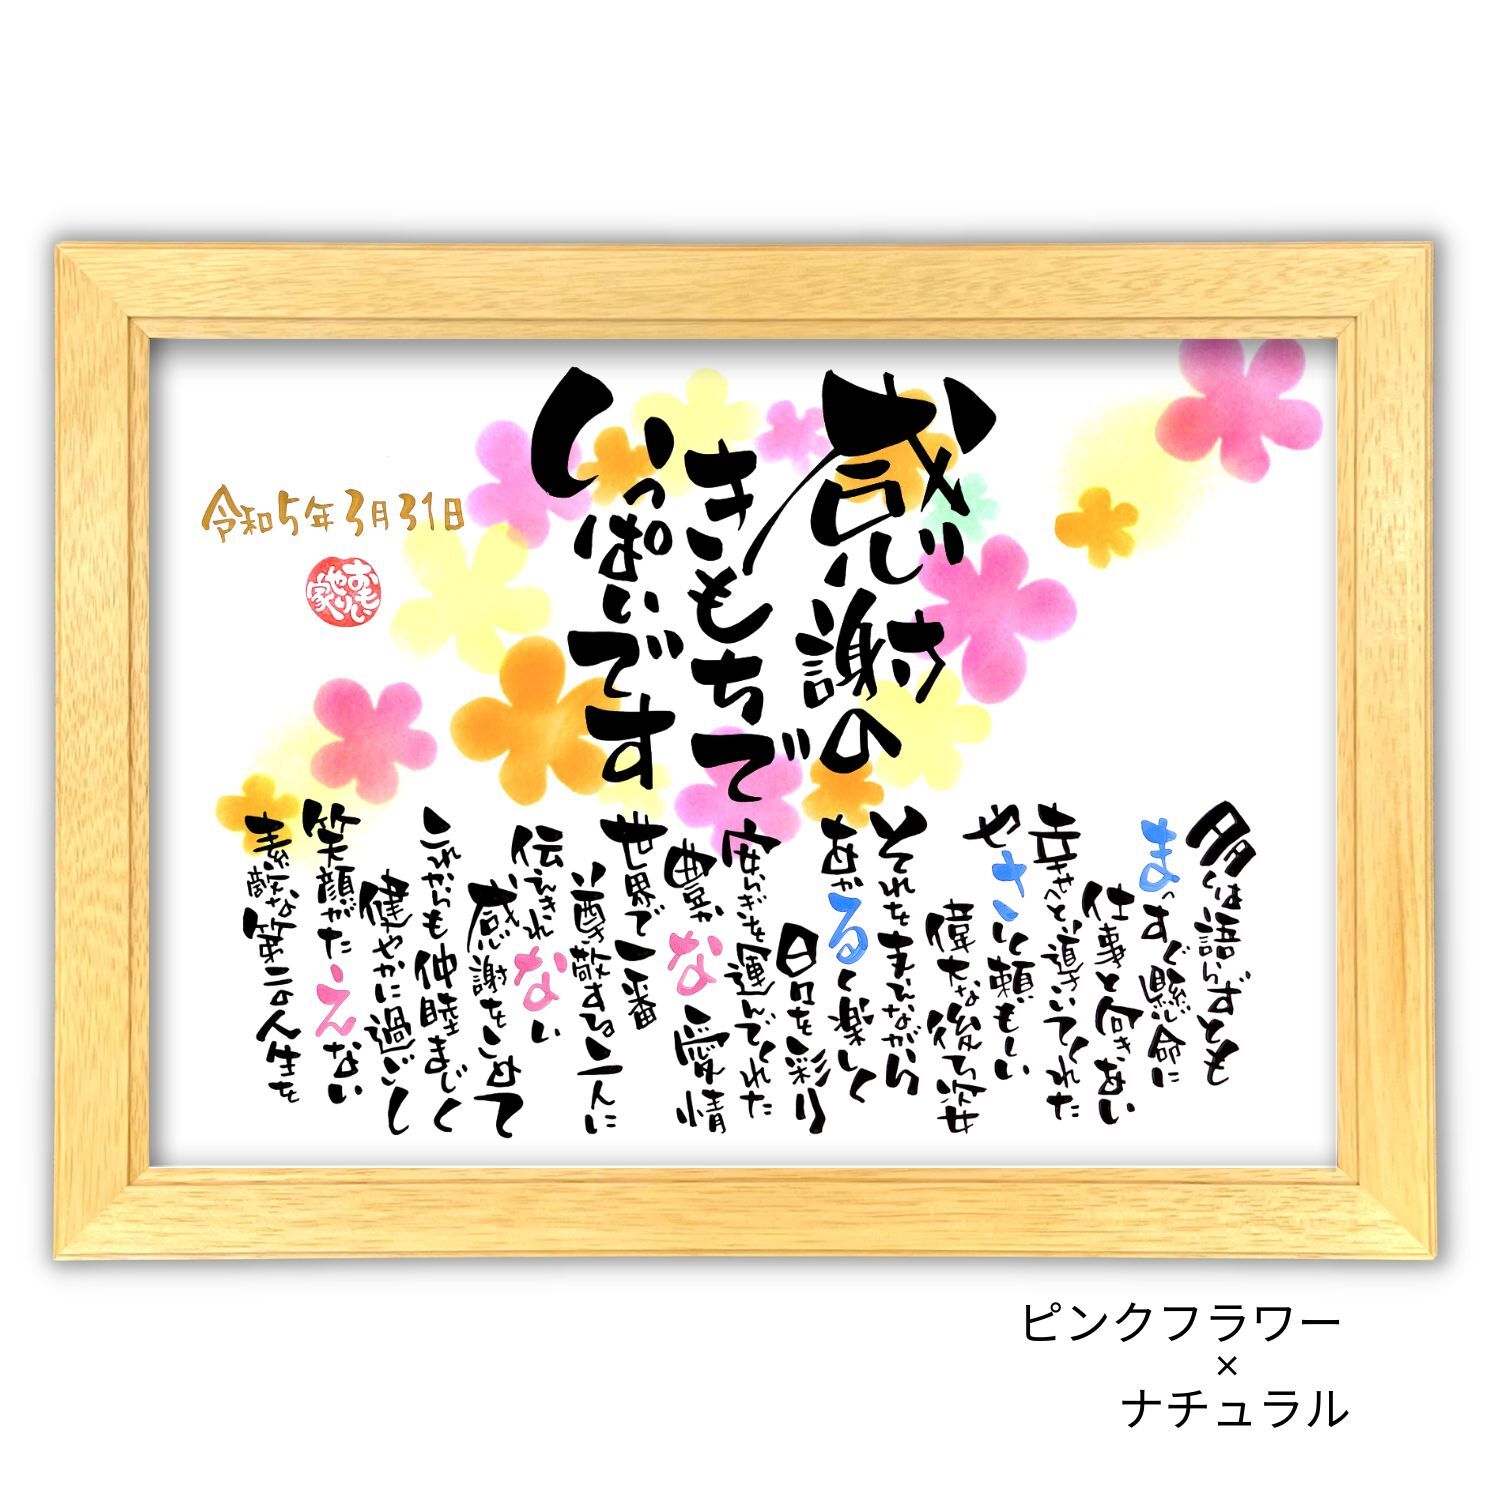 感謝の
きもちで
いっぱいです
多くは語らずとも
まっすぐ懸命に
仕事と向きあい
幸せへと導いてくれた
やさしく頼もしい
偉大な後ろ姿
それをまといながら
あかるく楽しく
日々を彩り
安らぎを運んでくれた
豊かな愛情
世界で一番
尊敬する二人に
伝えきれない
感謝をこめて
これからも仲睦まじく
健やかに過ごし
笑顔がたえない
素敵な第二の人生を
令和5年3月31日
おもい
やり
家
ピンクフラワー
×
ナチュラル